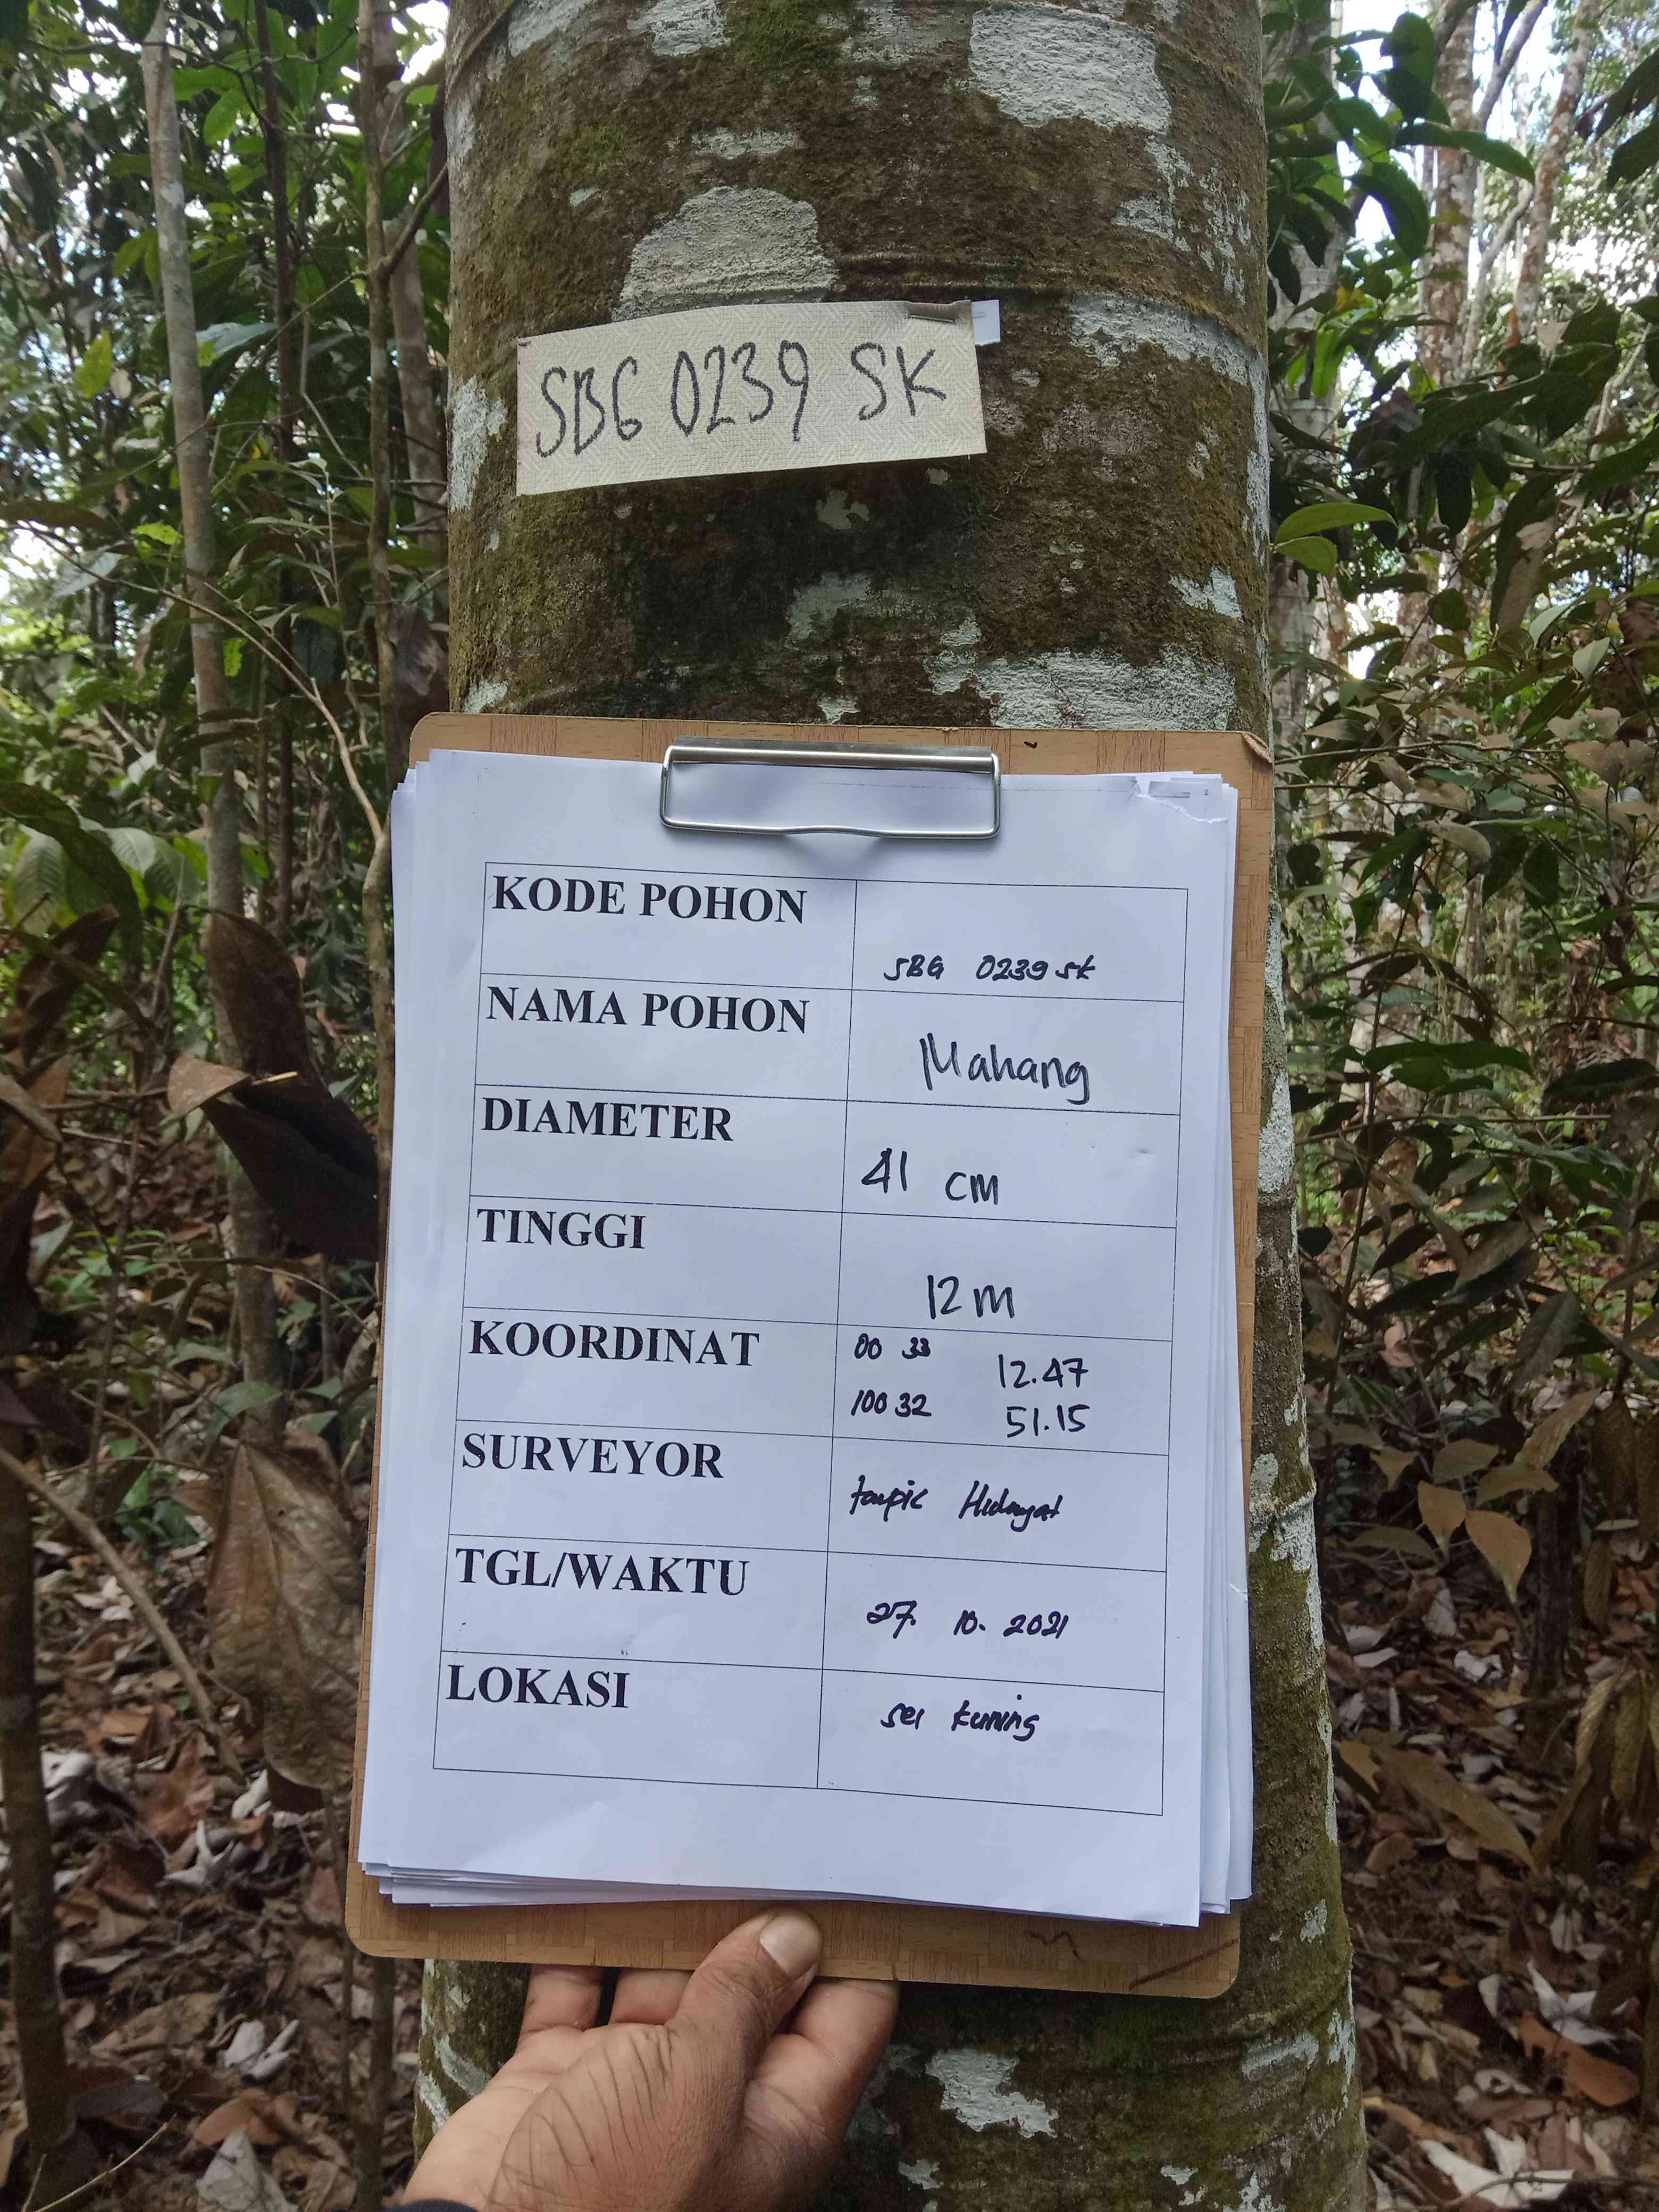 SBG 0239 SK
KODE POHON SBG 0239 SK
NAMA POHON Mahang
DIAMETER 41 cm
TINGGI 12 m
KOORDINAT 00 33 12.47
100 32 51.15
SURVEYOR taupic Hidayat
TGL/WAKTU 27. 10. 2021
LOKASI sei kuning